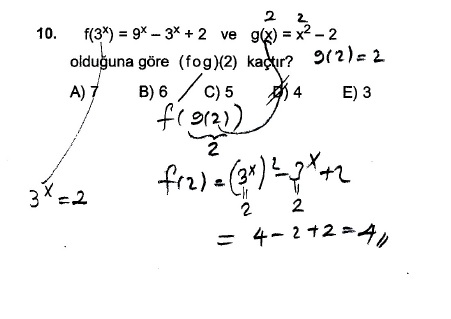 2 2
10. f(3ˣ) = 9ˣ – 3ˣ + 2 ve g(x) = x² – 2
olduğuna göre (fog)(2) kaçtır? g(2) = 2
A) 7 B) 6 C) 5 D) 4 E) 3
f(g(2))
2
f(2) = (3ˣ)² – 3ˣ + 2
3ˣ = 2
2 2
= 4 – 2 + 2 = 4